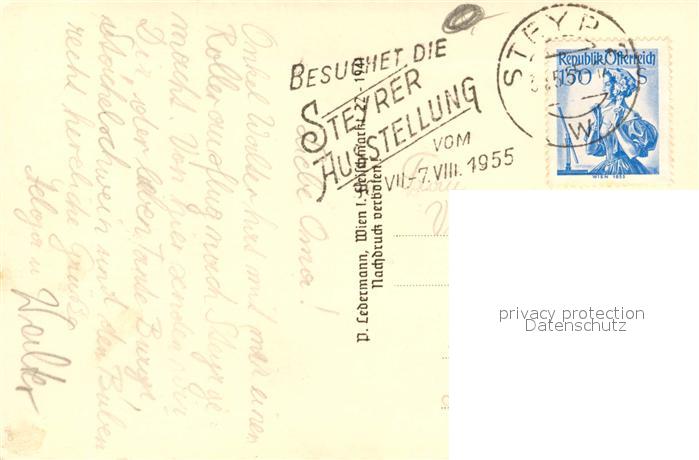 Liebe Oma!
Onkel Walter hat mit mir einen
Rollerausflug nach Steyr ge-
macht. Von hier senden wir
Dir, der lieben Tante Burgl
und den Buben
recht herzliche Grüße
Helga u
Walter
P. Ledermann, Wien I. Fleischmarkt 22 - 1941
Nachdruck verboten.
BESUCHET DIE
STEYRER
AUSSTELLUNG
VOM
VII.-7.VIII.1955
STEYR
W
Republik Österreich
1.50 S
WIEN 1853
privacy protection
Datenschutz